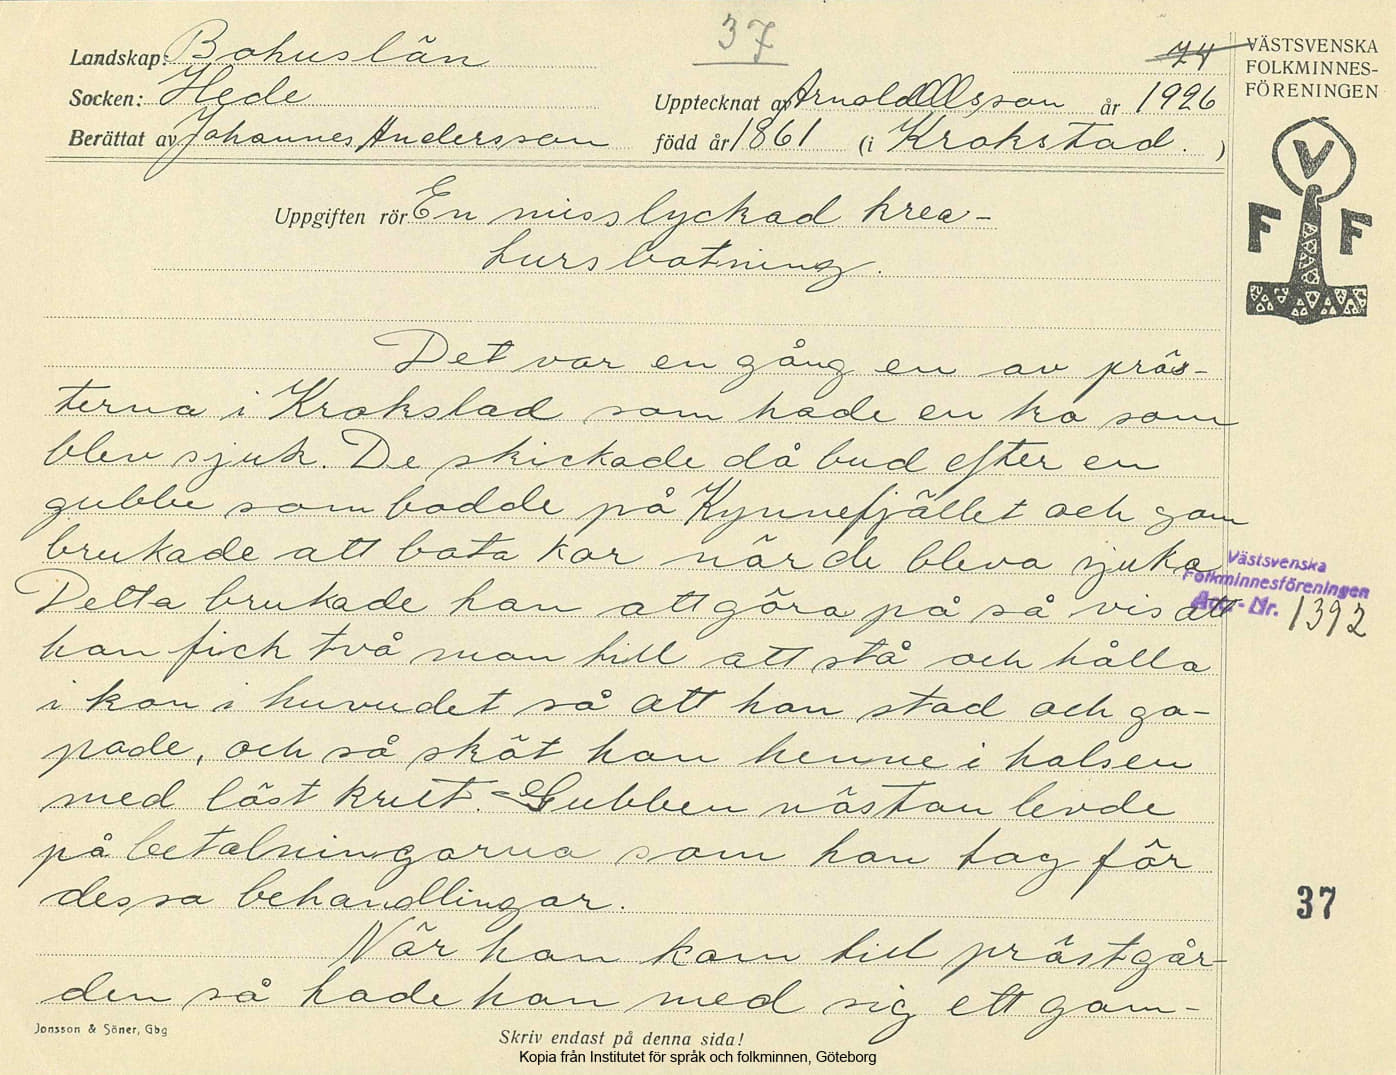 37
Landskap: Bohuslän
74
Socken: Hede
Upptecknat av Arnold Olsson år 1926
Berättat av Johannes Andersson född år 1861 (i Krokstad. )
VÄSTSVENSKA
FOLKMINNES-
FÖRENINGEN
V
F F
Uppgiften rör En misslyckad krea-
tursbotning.
Det var en gång en av präs-
terna i Krokstad som hade en ko som
blev sjuk. De skickade då bud efter en
gubbe som bodde på Kynnefjället och som
brukade att bota kor när de bleva sjuka
Detta brukade han att göra på så vis att
han fick två man till att stå och hålla
i kon i huvudet så att hon stod och ga-
pade, och så sköt han henne i halsen
med löst krut. Gubben nästan levde
på betalningarna som han tog för
dessa behandlingar.
När han kom till prästgår-
den så hade han med sig ett gam-
Västsvenska
Folkminnesföreningen
Acc.-Nr. 1392
37
Jonsson & Söner, Gbg
Skriv endast på denna sida!
Kopia från Institutet för språk och folkminnen, Göteborg